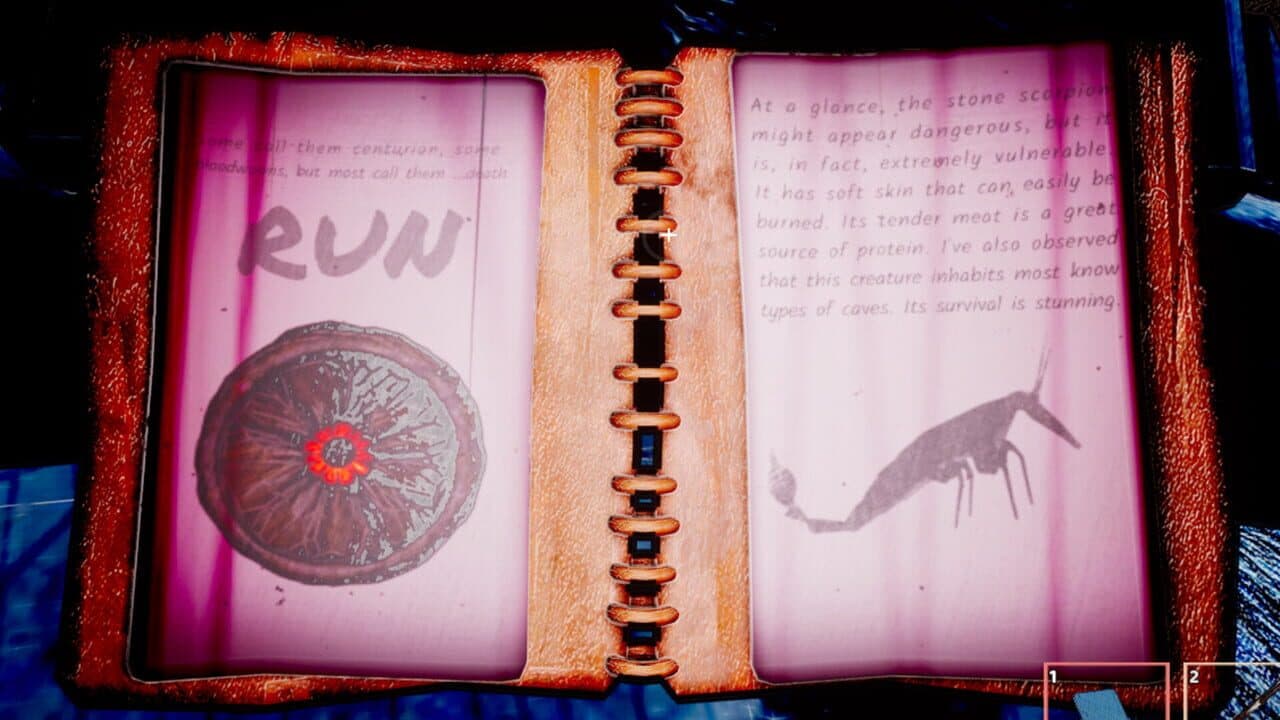 Some call them centurion, some
bloodworms, but most call them ...death
RUN
At a glance, the stone scorpion
might appear dangerous, but it
is, in fact, extremely vulnerable.
It has soft skin that can, easily be
burned. Its tender meat is a great
source of protein. I've also observed
that this creature inhabits most know
types of caves. Its survival is stunning.
1
2